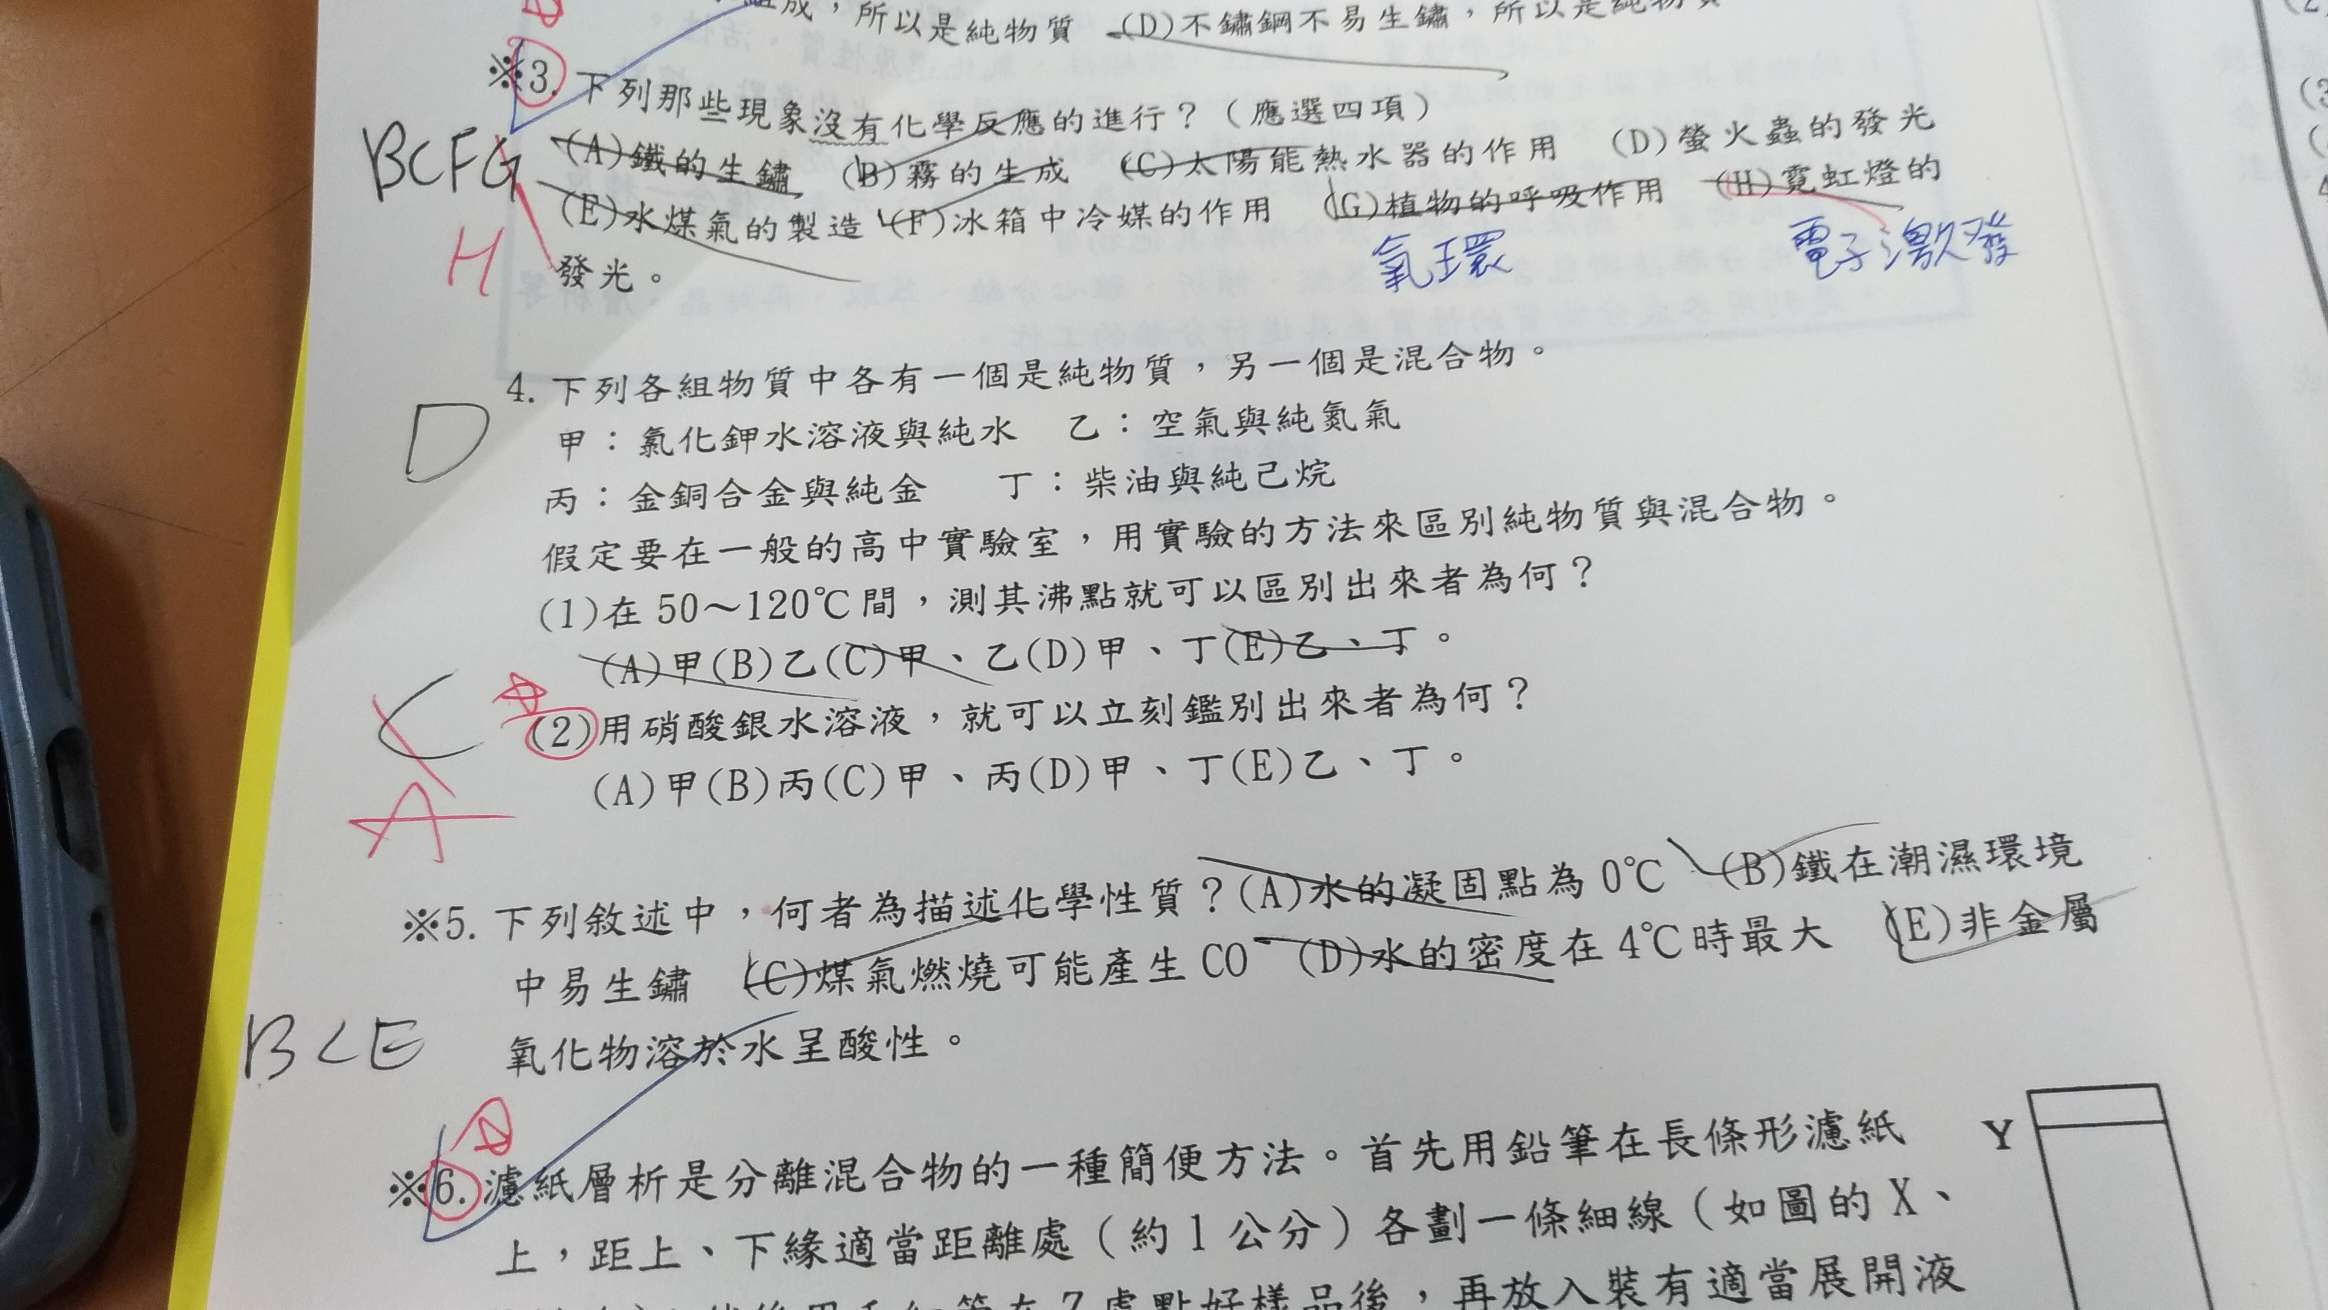 組成，所以是純物質 (D)不鏽鋼不易生鏽，所以是純物質
※3. 下列那些現象沒有化學反應的進行？（應選四項）
BCFG
(A)鐵的生鏽 (B)霧的生成 (C)太陽能熱水器的作用 (D)螢火蟲的發光
(E)水煤氣的製造 (F)冰箱中冷媒的作用 (G)植物的呼吸作用 (H)霓虹燈的
H
發光。
氧環
電子激發
4. 下列各組物質中各有一個是純物質，另一個是混合物。
D
甲：氯化鉀水溶液與純水 乙：空氣與純氮氣
丙：金銅合金與純金 丁：柴油與純己烷
假定要在一般的高中實驗室，用實驗的方法來區別純物質與混合物。
(1)在50～120℃間，測其沸點就可以區別出來者為何？
(A)甲(B)乙(C)甲、乙(D)甲、丁(E)乙、丁。
C
(2)用硝酸銀水溶液，就可以立刻鑑別出來者為何？
A
(A)甲(B)丙(C)甲、丙(D)甲、丁(E)乙、丁。
※5. 下列敘述中，何者為描述化學性質？(A)水的凝固點為0℃ (B)鐵在潮濕環境
中易生鏽 (C)煤氣燃燒可能產生CO (D)水的密度在4℃時最大 (E)非金屬
BCE
氧化物溶於水呈酸性。
※6. 濾紙層析是分離混合物的一種簡便方法。首先用鉛筆在長條形濾紙
Y
上，距上、下緣適當距離處（約1公分）各劃一條細線（如圖的X、
處點好樣品後，再放入裝有適當展開液